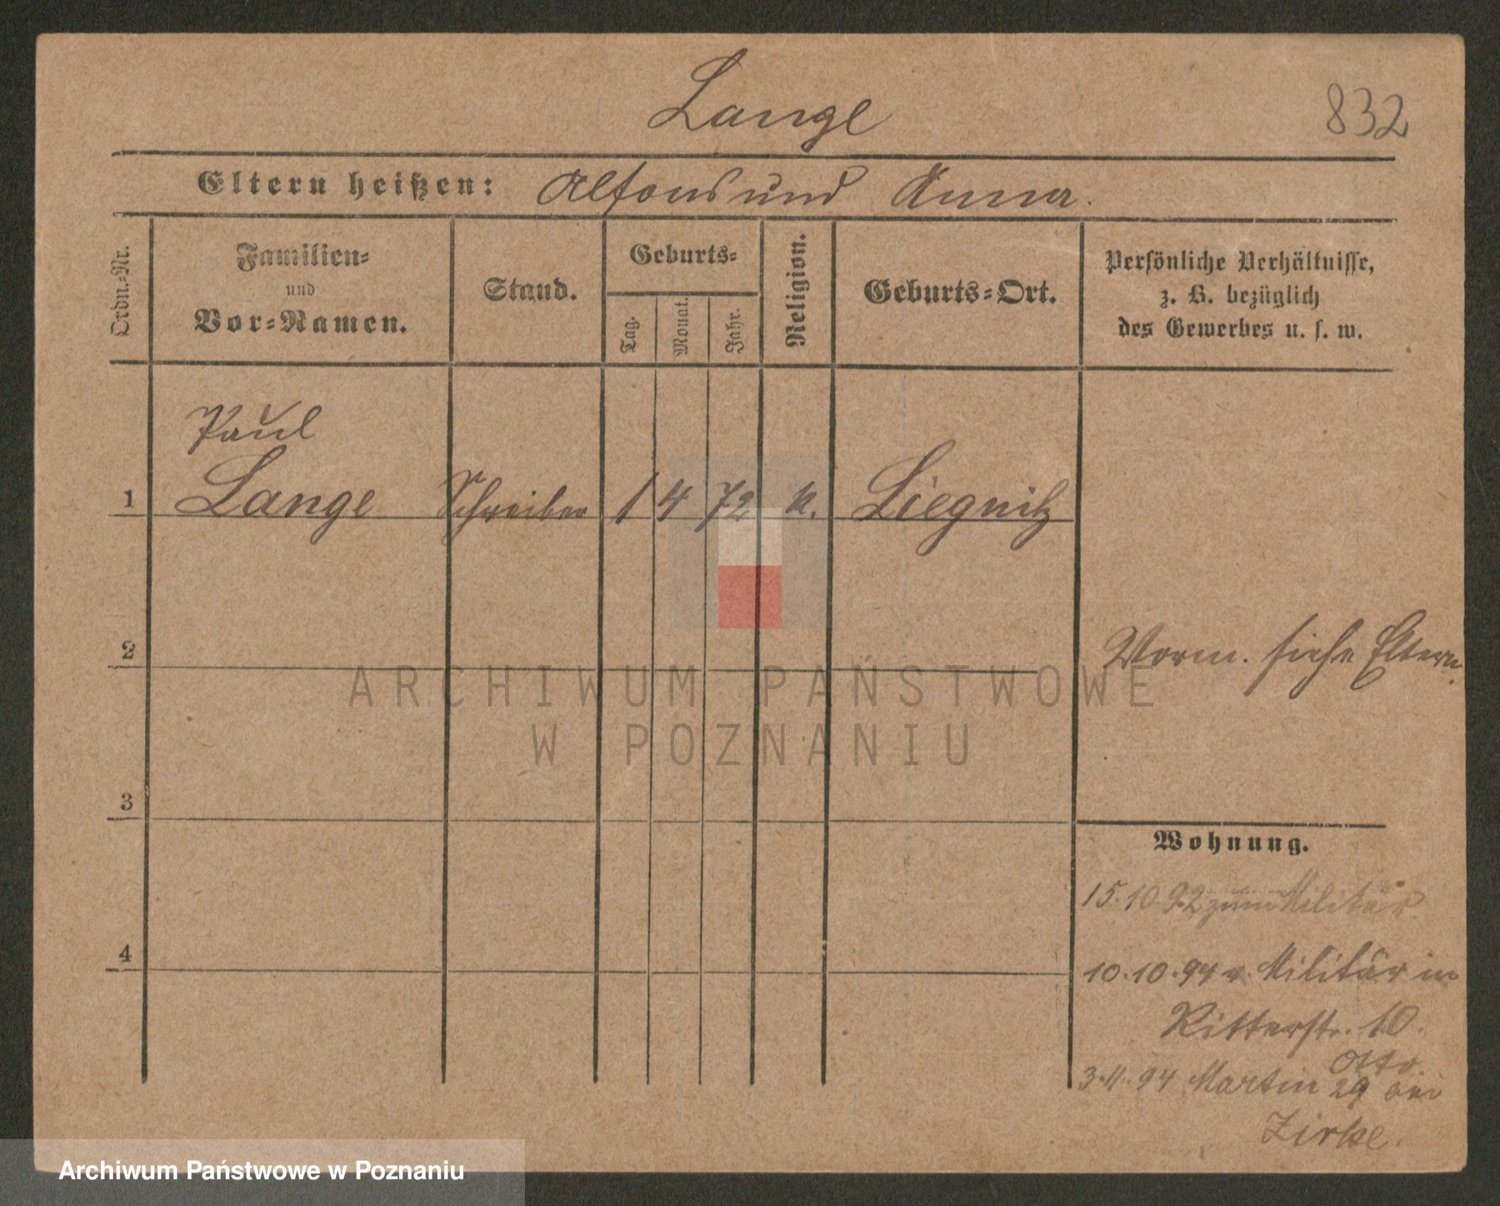 Lange
832
Eltern heißen: Alfons und Anna.
Ordn.-Nr.
Familien-
und
Vor-Namen.
Stand.
Geburts-
Tag.
Monat.
Jahr.
Religion.
Geburts-Ort.
Persönliche Verhältnisse,
z. B. bezüglich
des Gewerbes u. s. w.
Paul
1 Lange Schreiber 1 4 72 k. Liegnitz
2
Vorm. siehe Eltern.
ARCHIWUM PAŃSTWOWE
W POZNANIU
3
Wohnung.
15.10.92 zum Militär
4
10.10.94 v. Militär in
Ritterstr. 10.
Otto
3.11.94 Martin 29 bei
Zirke.
Archiwum Państwowe w Poznaniu